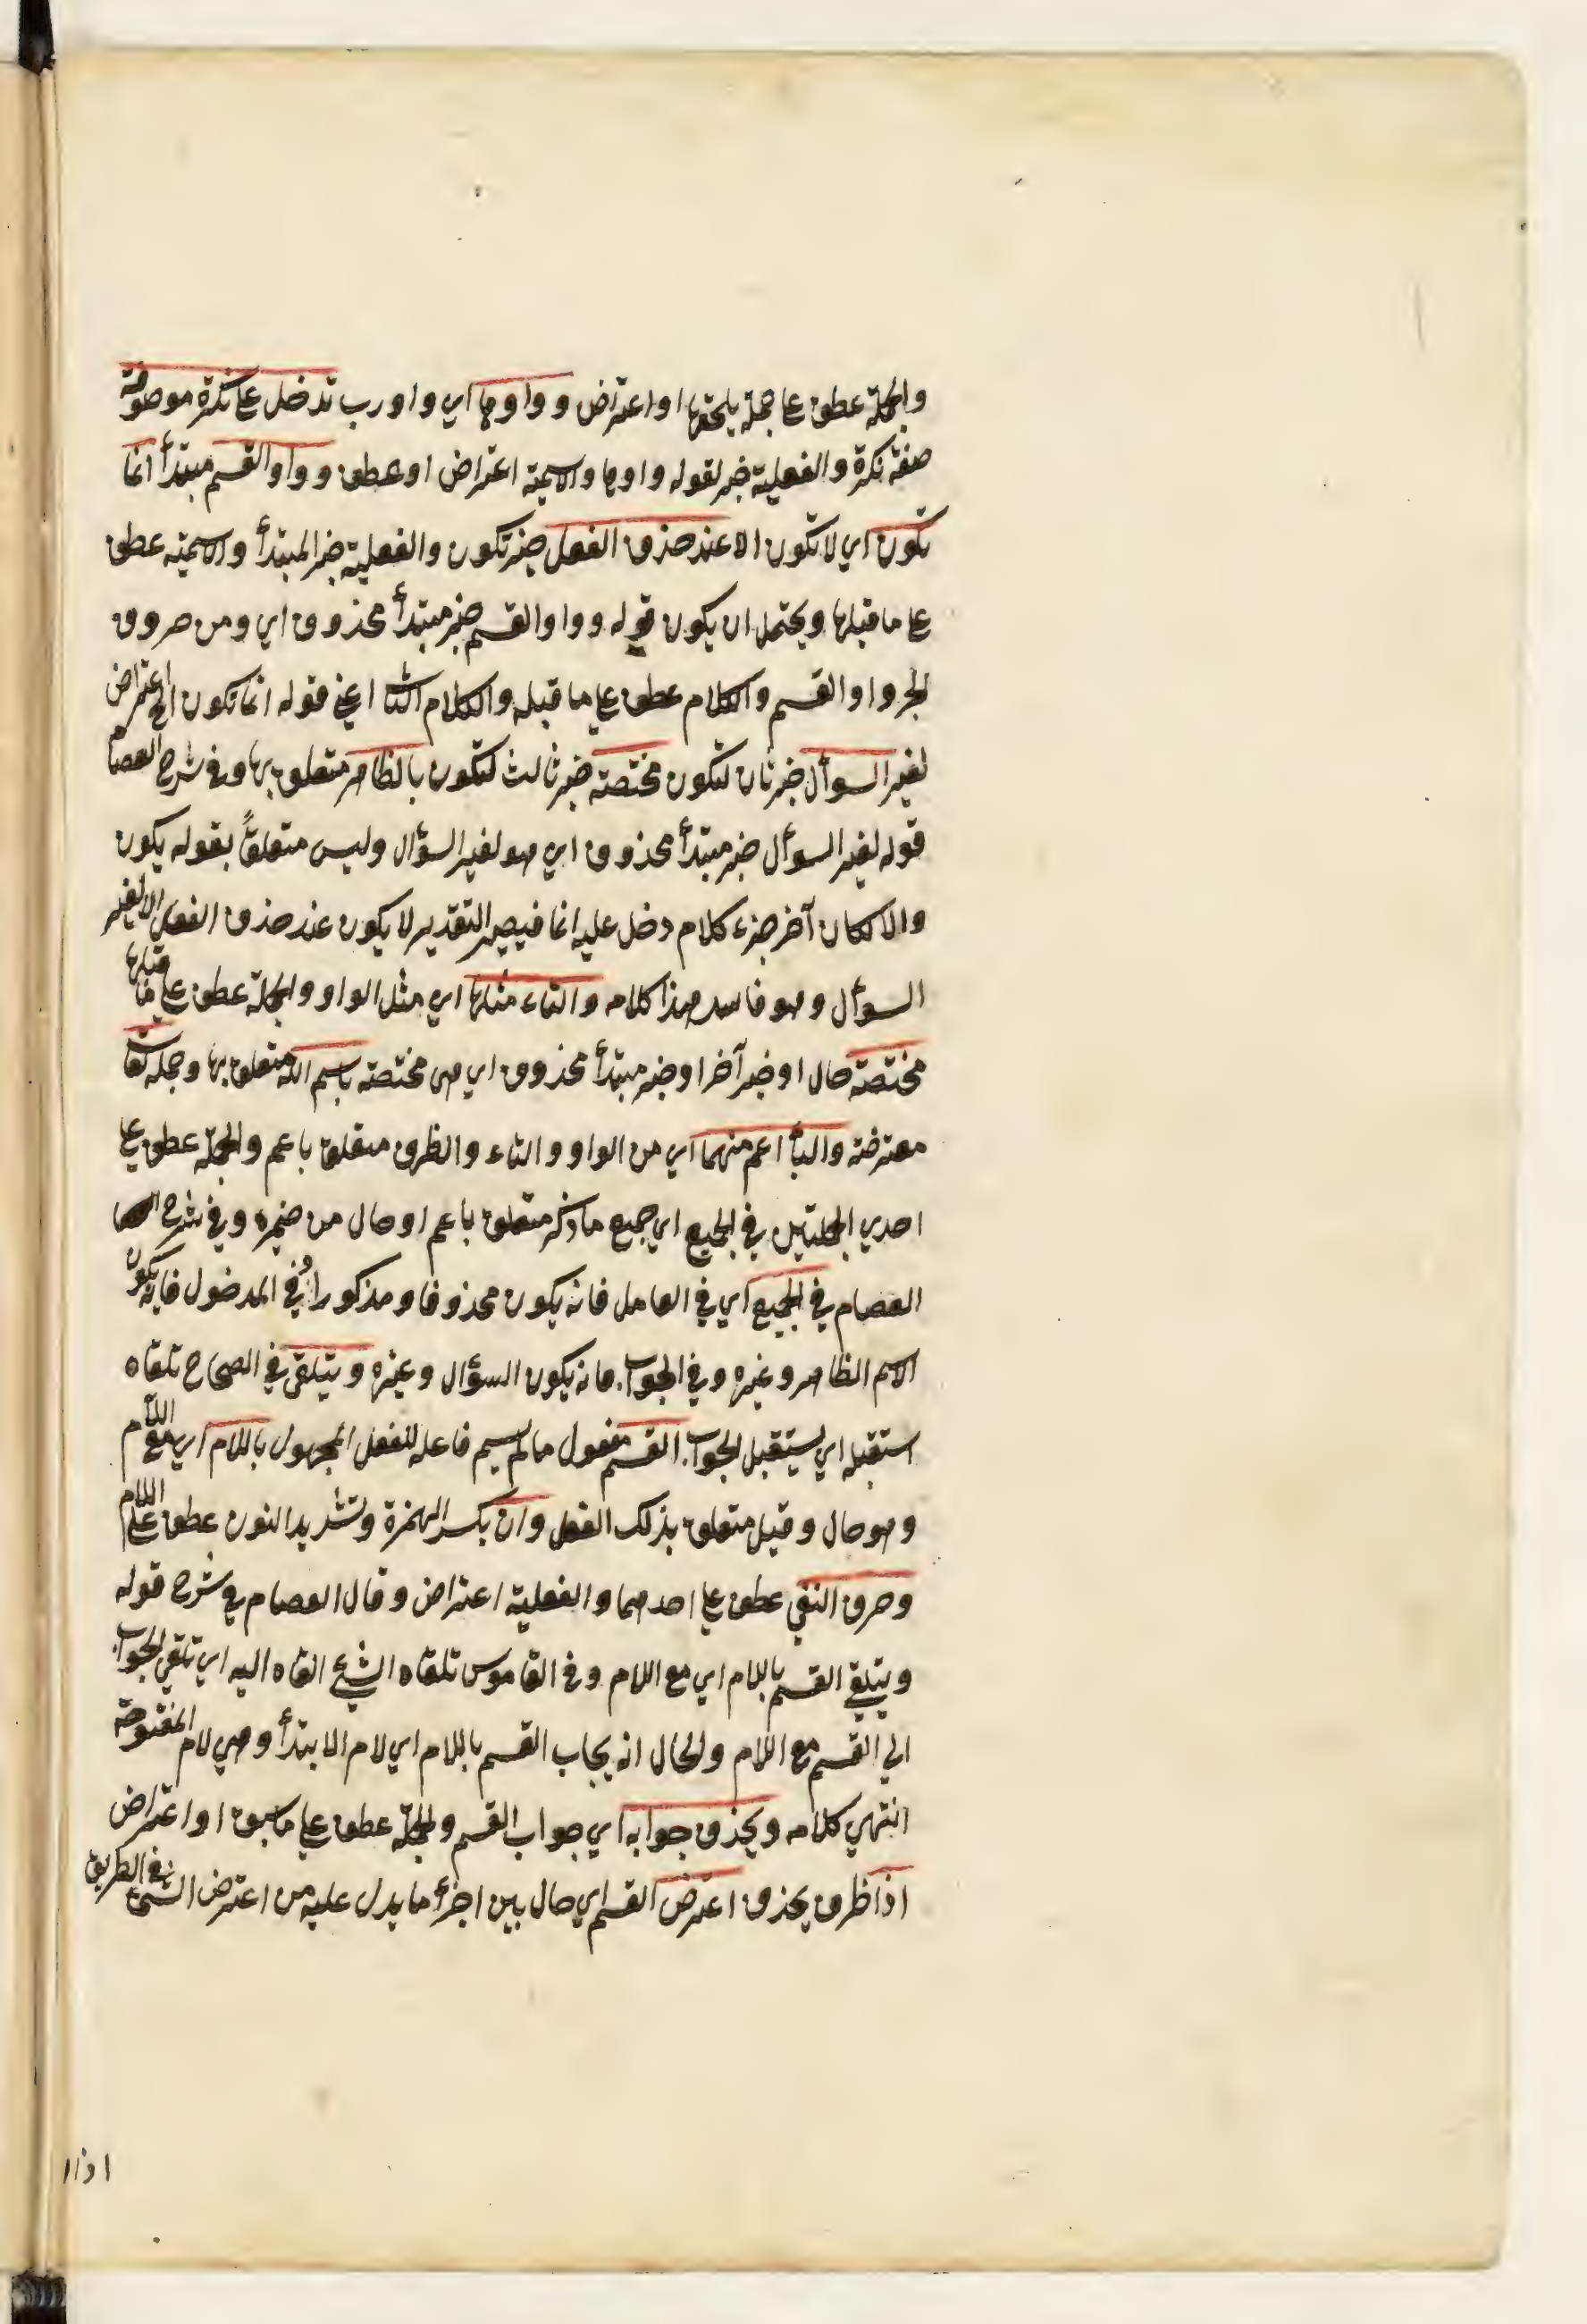 والجملة عطف على جملة يلحقها او اعتراض وواوها اي واو رب تدخل على نكرة موصوفة
صفة نكرة والفعلية خبر لقوله واوها والاسمية اعتراض او عطف وواو القسم مبتدأ انما
تكون اي لا تكون الا عند حذف الفعل خبر تكون والفعلية خبر المبتدأ والاسمية عطف
على ما قبلها ويحتمل ان يكون قوله وواو القسم خبر مبتدأ محذوف اي ومن حروف
الجر واو القسم والكلام عطف على ما قبله والكلام الثا اعني قوله انما تكون الخ اعتراض
لغير السوأل خبر ثان لتكون مختصة خبر ثالث لتكون بالظاهر متعلق بها وفي شرح العصام
قوله لغير السوأل خبر مبتدأ محذوف اي هو لغير السؤال وليس متعلقاً بقوله يكون
والا لكان آخر جزء كلام دخل عليه انما فيصير التقدير لا يكون عند حذف الفعل الا لغير
السوأل وهو فاسد هذا كلامه والتاء مثلها اي مثل الواو والجملة عطف على ما قبلها
مختصة حال او خبر آخر او خبر مبتدأ محذوف اي هي مختصة باسم الله متعلق بها وجملة تعا
معترضة والبأ اعم منهما اي من الواو والتاء والظرف متعلق باعم والجملة عطف على
احدي الجملتين في الجميع اي جميع ما ذكر متعلق باعم او حال من ضميره وفي شرح
العصام في الجميع اي في العامل فانه يكون محذوفا ومذكوراً وفي المدخول فانه يكون
الاسم الظاهر وغيره وفي الجواب فانه يكون السؤال وغيره ويتلقى في الصحاح تلقاه
استقبله اي يستقبل الجواب القسم مفعول ما لم يسم فاعله للفعل المجهول باللام اي مع اللام
وهو حال وقيل متعلق بذلك الفعل وان بكسر الهمزة وتشديد النون عطف على اللام
وحرف النفي عطف على احدهما والفعلية اعتراض وقال العصام في شرح قوله
ويتلقى القسم باللام اي مع اللام وفي القاموس تلقاه الشيخ القاه اليه اي تلقي الجواب
الي القسم مع اللام والحال انه يجاب القسم باللام اي لام الابتدأ وهي لام المفتوحة
انتهي كلامه ويحذف جوابه اي جواب القسم والجملة عطف على ما سبق او اعتراض
اذا ظرف يحذف اعترض القسم اي حال بين اجزأ ما يدل عليه من اعترض الشئ في الطريق
اذا